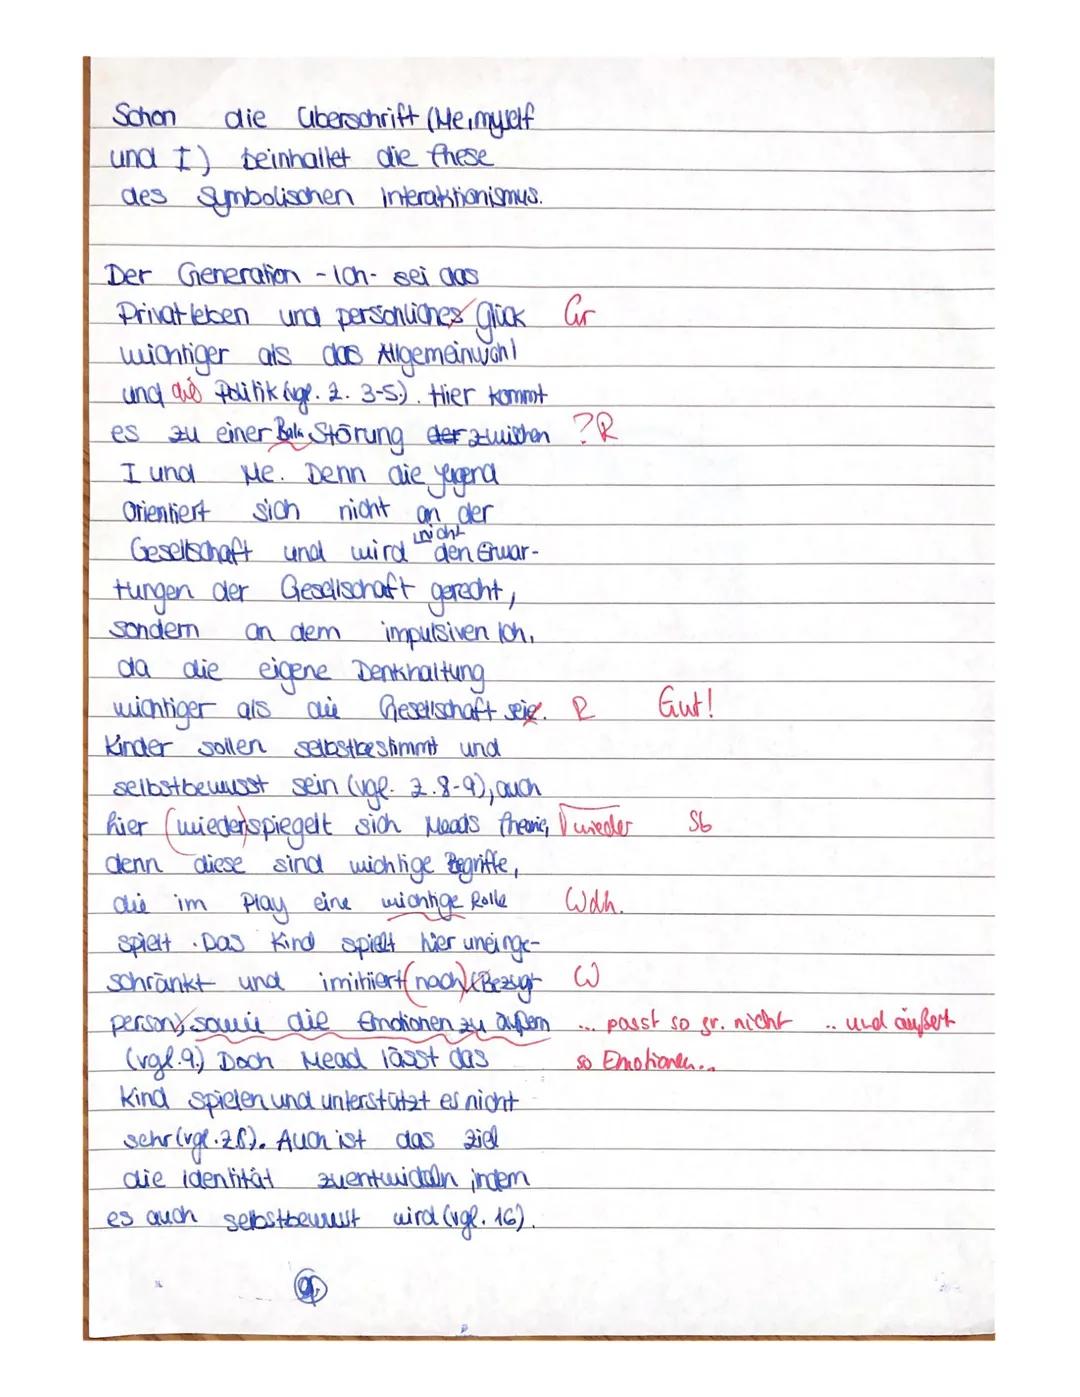 Schon die Überschrift (Me, myself
und I) beinhaltet die these
des symbolischen Interaktionismus.
Der Generation -Ich- sei das
Privatleben und persönliches Glück Gr
wichtiger als das Allgemeinwohl
und die Politik (vgl. Z. 3-5.). Hier kommt
es zu einer Störung der zwischen ?R
I und Me. Denn die Jugend
Orientiert sich nicht an der
Gesellschaft und wird nicht den Erwar-
tungen der Gesellschaft gerecht,
sondern an dem impulsiven Ich,
da die eigene Denkhaltung
wichtiger als die Gesellschaft seie. R Gut!
Kinder sollen selbstbestimmt und
selbstbewusst sein (vgl. Z. 8-9), auch
hier (wieder)spiegelt sich Meads theorie, wieder Sb
denn diese sind wichtige Begriffe,
die im Play eine wichtige Rolle Wdh.
spielt. Das Kind spielt hier uneinge-
schränkt und imitiert (nach) (Bezugs- W
person) sowie die Emotionen zu äußern ... passt so gr. nicht .. und äußert
(vgl. 9.) Doch Mead lässt das so Emotionen...
Kind spielen und unterstützt es nicht
sehr (vgl. Z 8). Auch ist das Ziel
die identität zuentwickeln, indem
es auch selbstbewusst wird (vgl. 16).